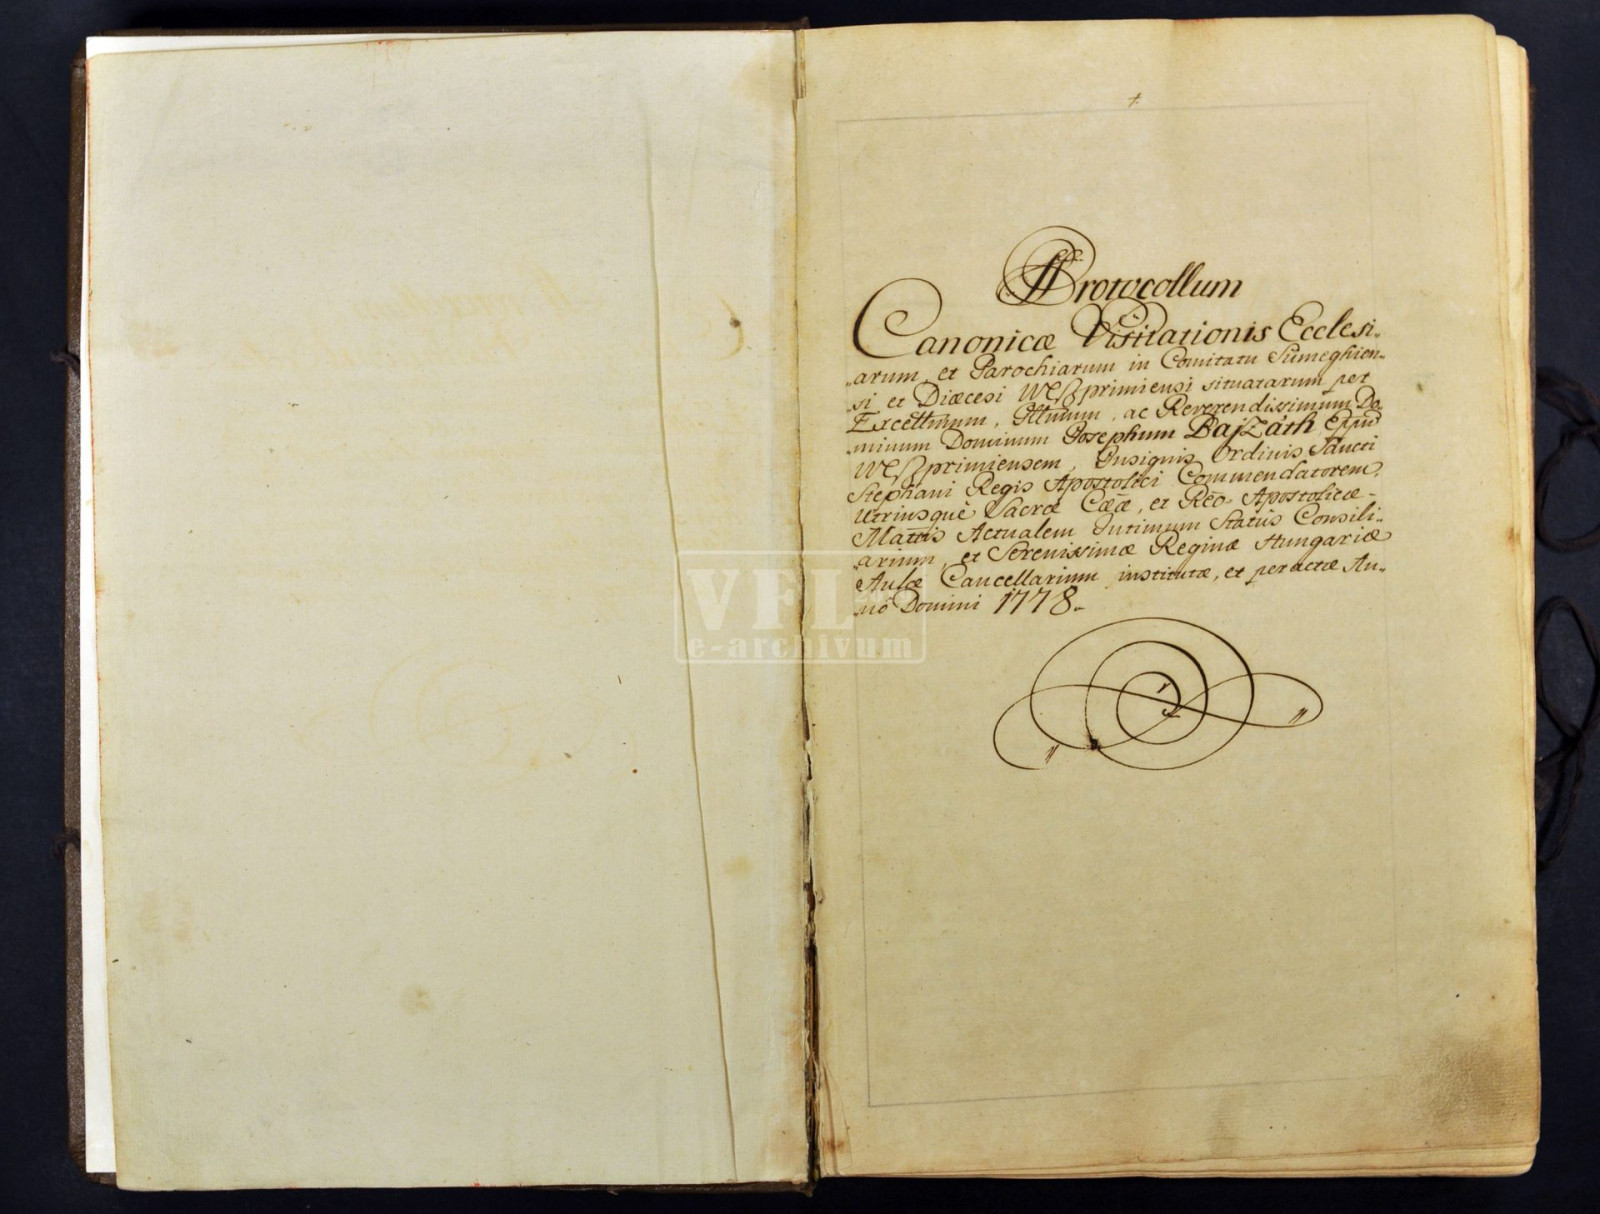 Protocollum
Canonicæ Visitationis Ecclesi-
arum, et Parochiarum in Comitatu Sümeghien-
si et Diæcesi Weßprimiensi situatarum per
Excellmum, Illmum, ac Reverendissimum Do-
minum Dominum Josephum Bajzáth Eppum
Weßprimiensem, Insignis Ordinis Sancti
Stephani Regis Apostolici Commendatorem,
Utriusquè Sacræ Cææ, et Reo Apostolicæ
Mattis Actualem Intimum Status Consili-
arium, et Serenissimæ Reginæ Hungariæ
Aulæ Cancellarium institutæ, et peractæ An-
no Domini 1778.
VFL
e-archivum